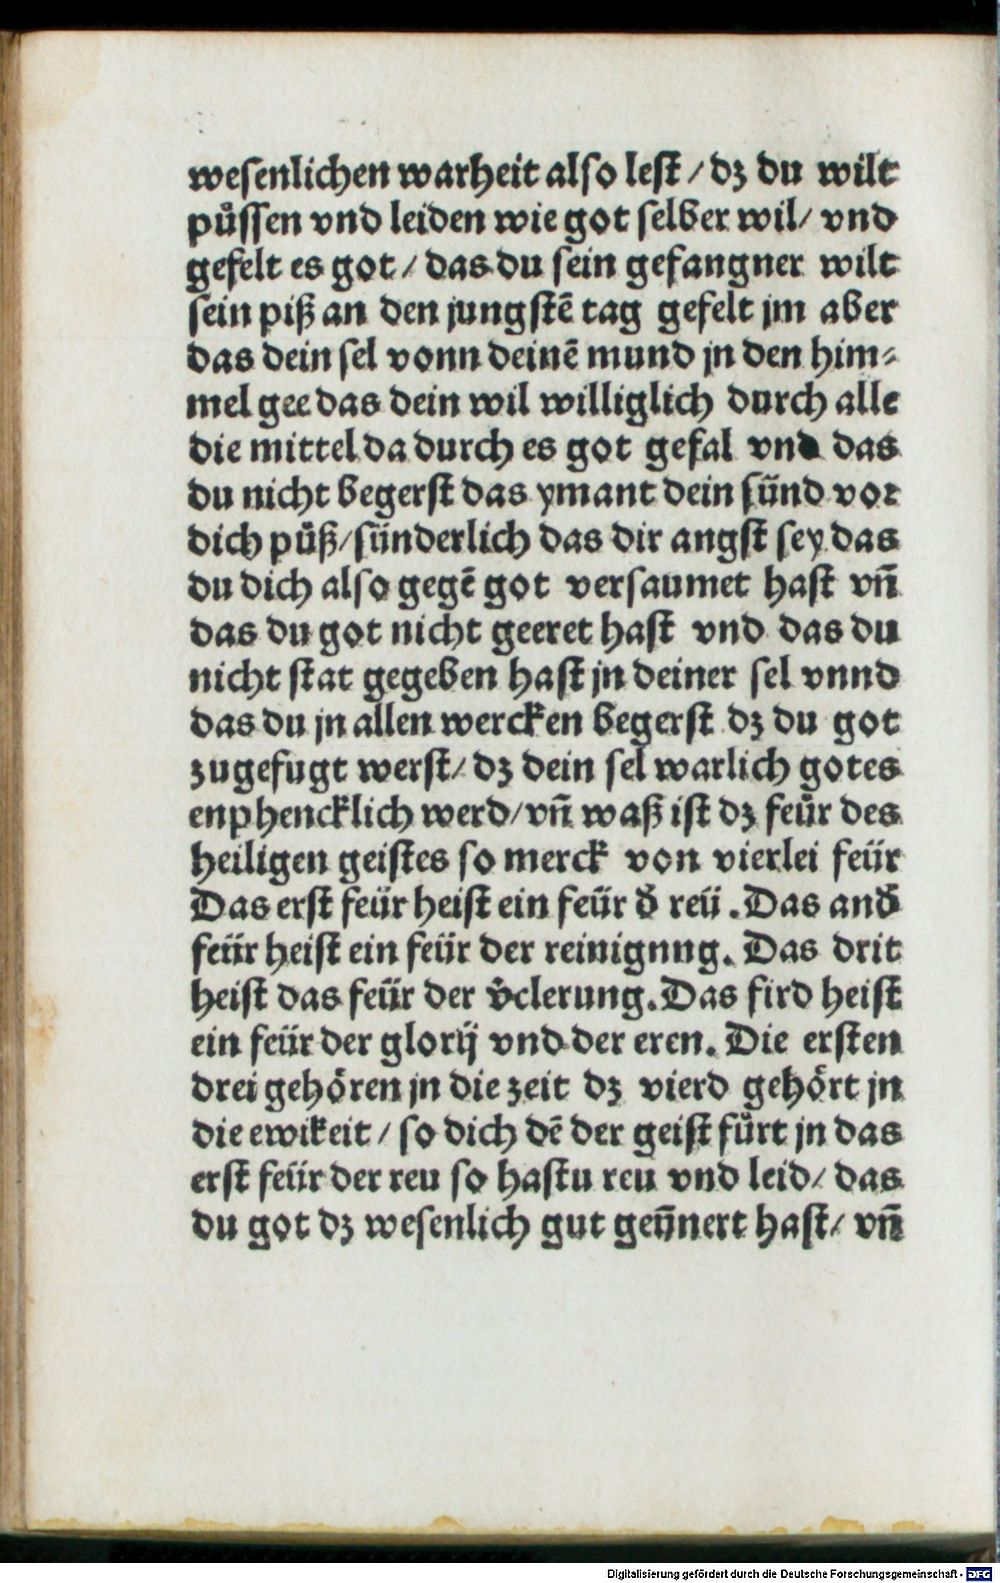 wesenlichen warheit also lest / dz du wilt
půssen vnd leiden wie got selber wil / vnd
gefelt es got / das du sein gefangner wilt
sein piß an den jungstē tag gefelt jm aber
das dein sel vonn deinē mund jn den him⸗
mel gee das dein wil williglich durch alle
die mittel da durch es got gefal vnd das
du nicht begerst das ymant dein sünd vor
dich půß / sünderlich das dir angst sey das
du dich also gegē got versaumet hast vn̄
das du got nicht geeret hast vnd das du
nicht stat gegeben hast jn deiner sel vnnd
das du jn allen wercken begerst dz du got
zugefugt werst / dz dein sel warlich gotes
enphencklich werd / vn̄ waß ist dz feür des
heiligen geistes so merck von vierlei feür
Das erst feür heist ein feür d̕ reü . Das and̕
feür heist ein feür der reinignng. Das drit
heist das feür der v̂clerung. Das fird heist
ein feür der glorij vnd der eren. Die ersten
drei gehören jn die zeit dz vierd gehört jn
die ewikeit / so dich dē der geist fůrt jn das
erst feür der reu so hastu reu vnd leid / das
du got dz wesenlich gut geȳnert hast / vn̄
Digitalisierung gefördert durch die Deutsche Forschungsgemeinschaft - DFG